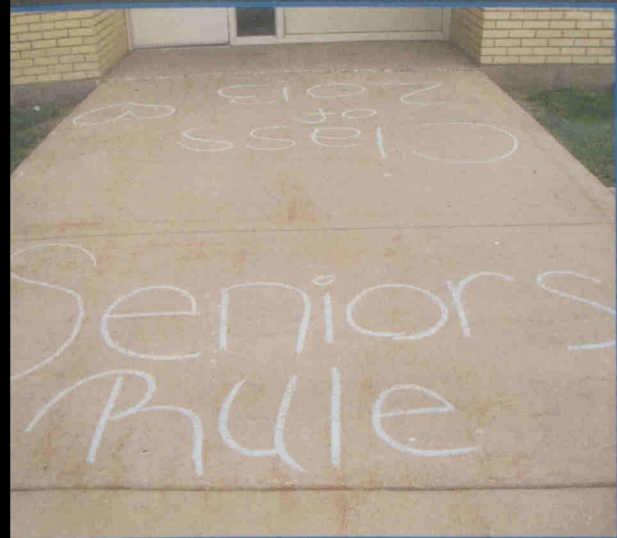 Class
of
2013
Seniors
Rule